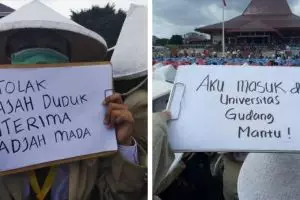 TOLAK
AJAH DUDUK
TERIMA
ADJAH MADA
AKU MASUK di
Universitas
Gudang
Mantu !